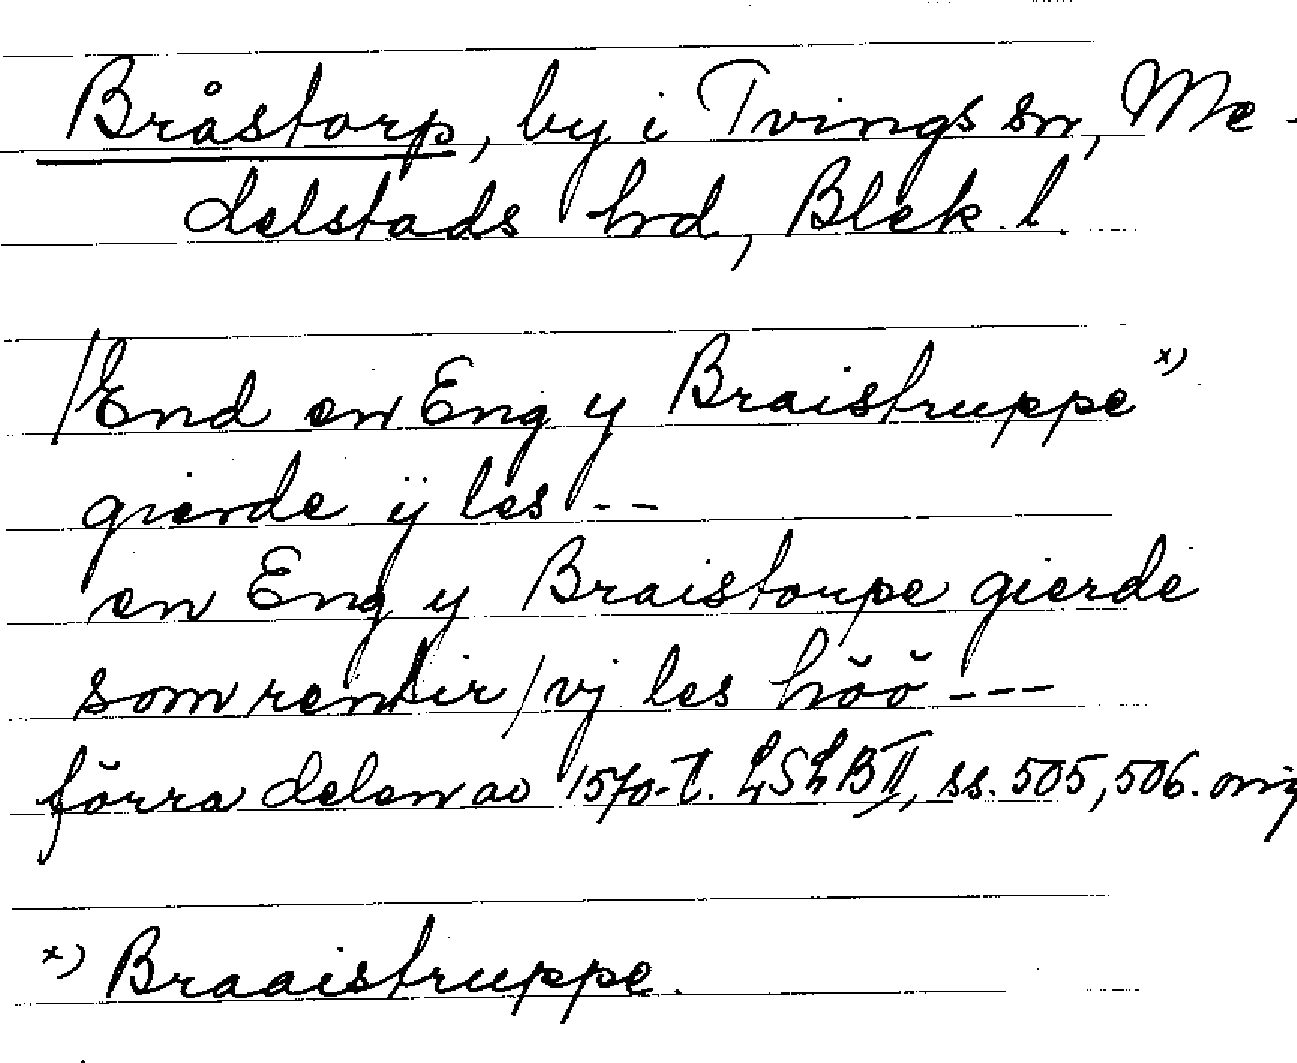 Bråstorp, by i Tvings sn, Me-
delstads hd, Blek. l.
/End en Eng y Braistruppe x)
gierde ij les - -
en Eng y Braistorpe gierde
som rentir / vj les höö - - -
förra delen av 1570-t. LSLB II, ss. 505, 506. orig
x) Braaistruppe.